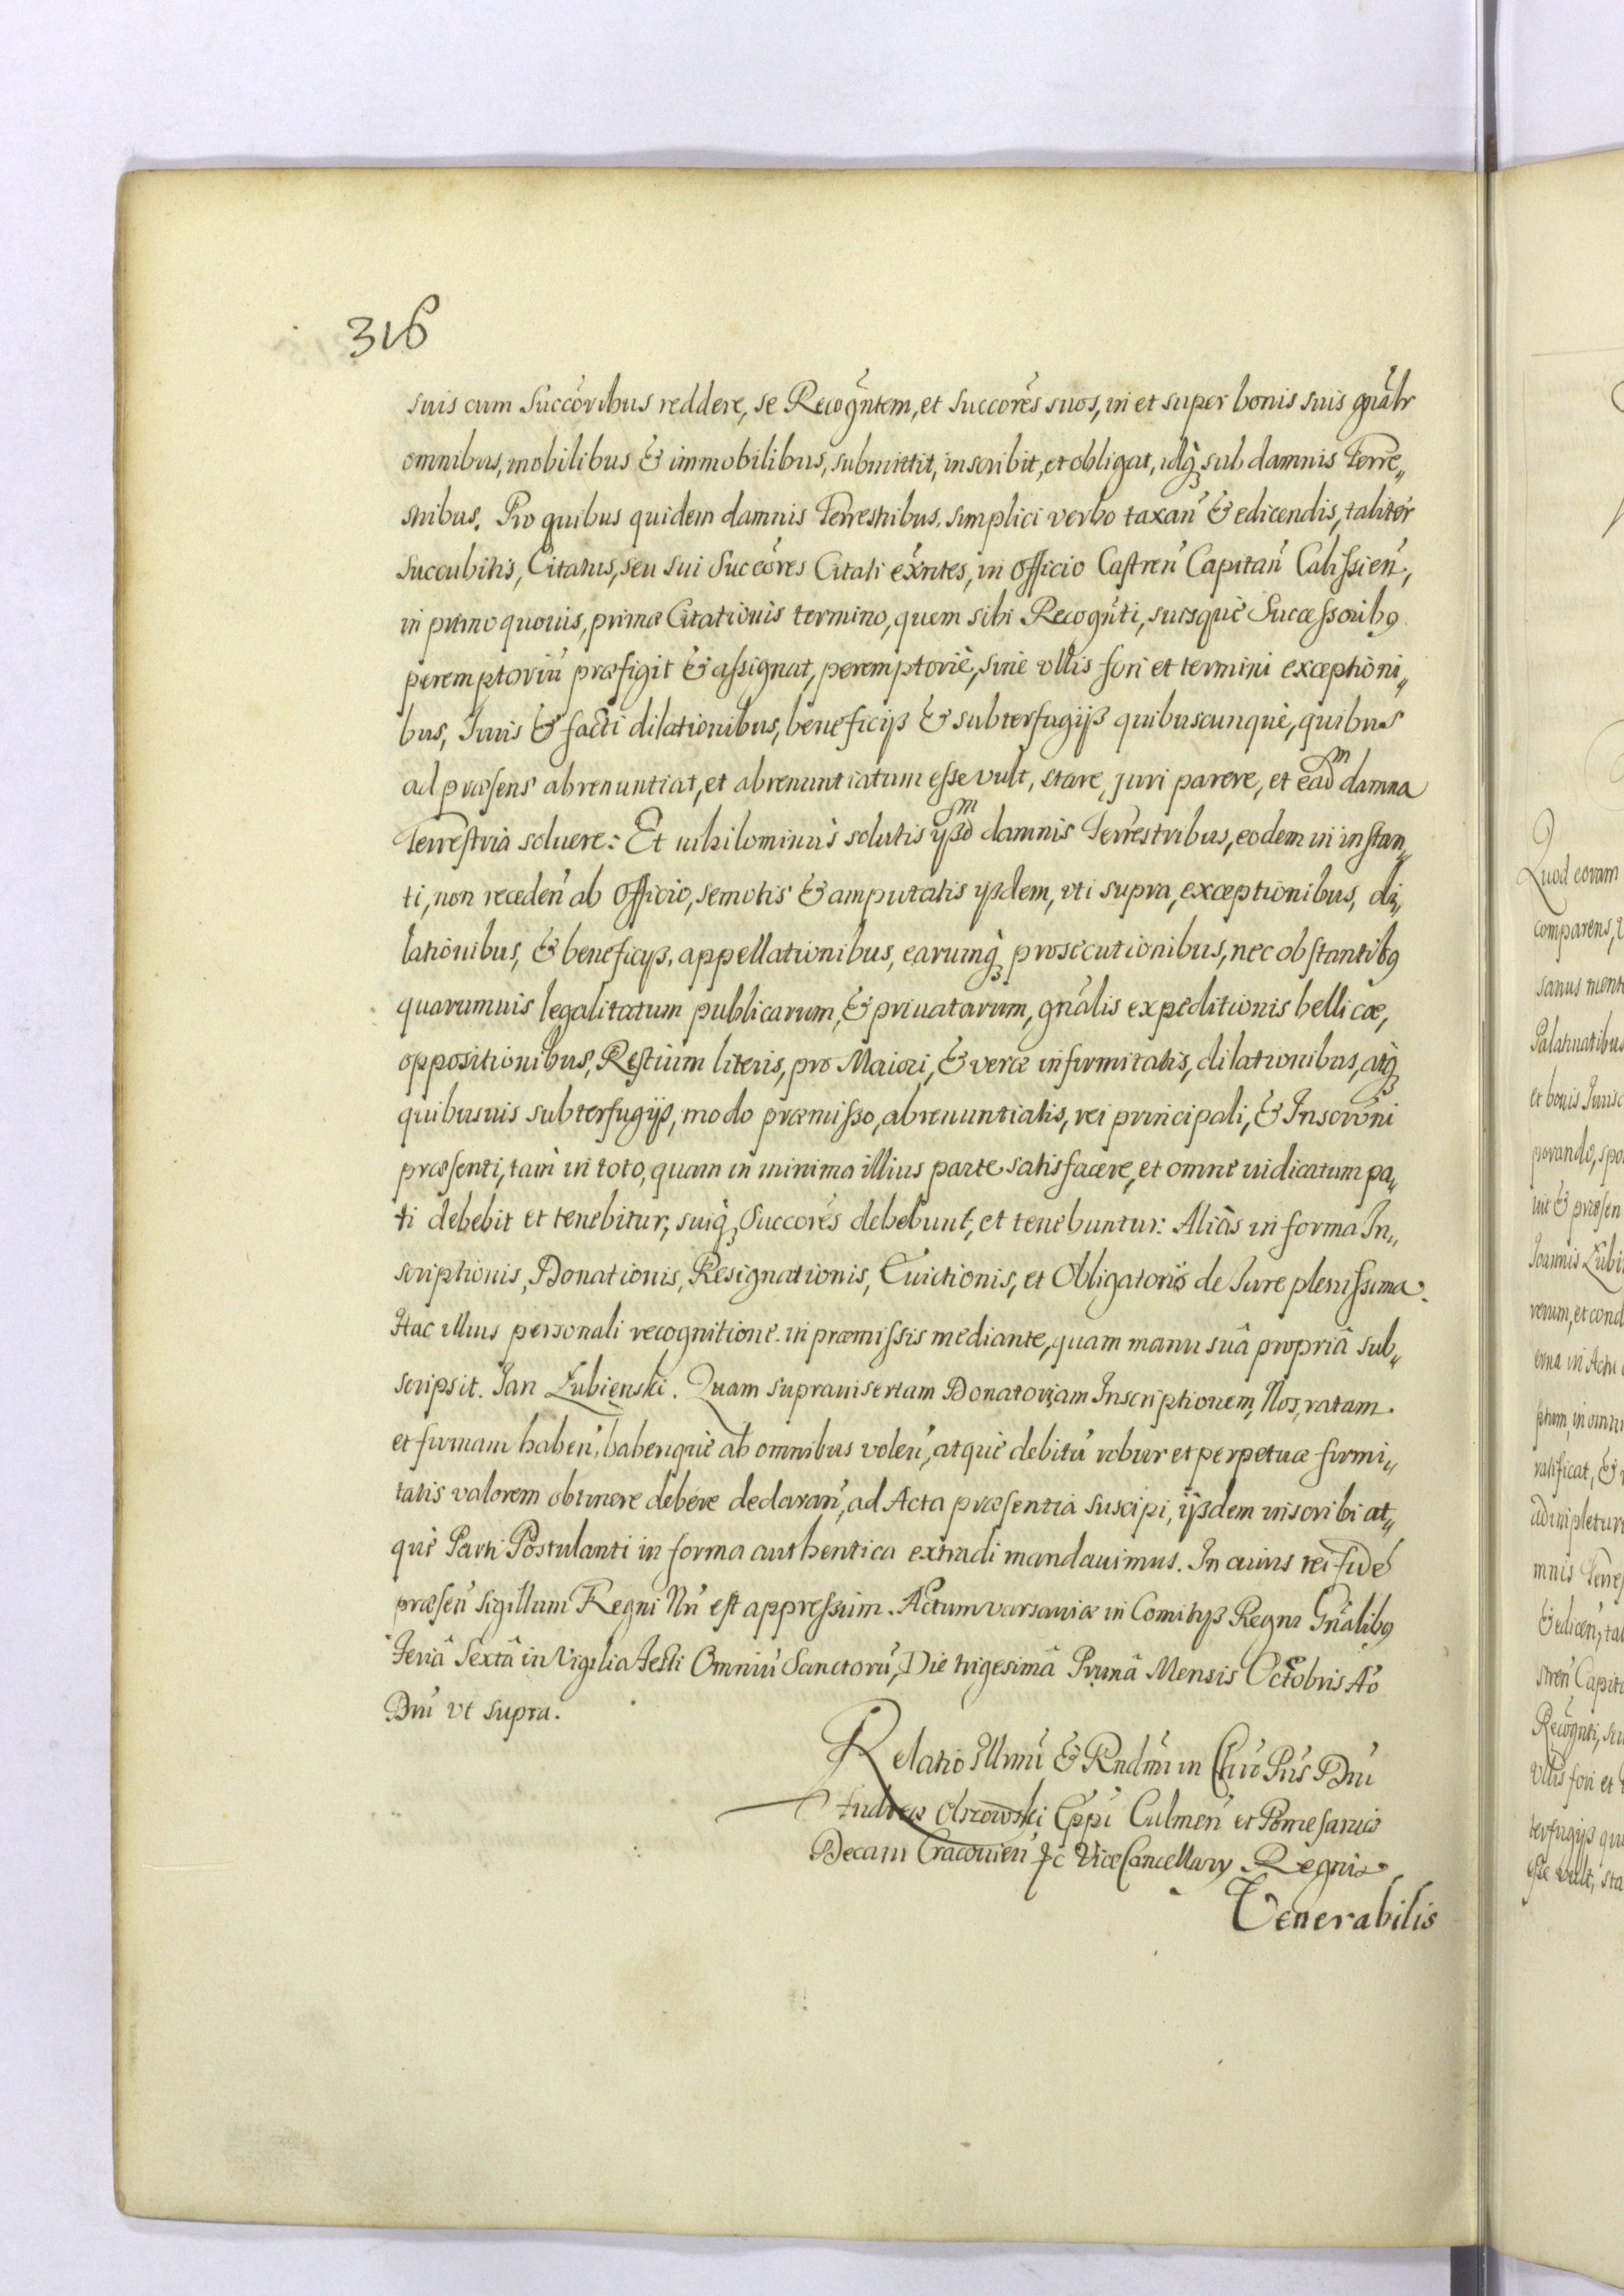 316
suis cum Succoribus reddere, se Recogntem, et Succores suos, in et super bonis suis gnalr
omnibus, mobilibus & immobilibus, submittit, inscribit, et obligat, idq3 sub damnis Terre„
stribus. Pro quibus quidem damnis Terrestribus, simplici verbo taxan & edicendis, taliter
succubitis, Citatus, seu sui Succores Citati exntes, in Officio Castren Capitan Calissien,
in primo quouis, primæ Citationis termino, quem sibi Recognti, suisque Successoribꝰ
peremptoriu præfigit & assignat, peremptorie, sine ullis fori et termini exceptioni„
bus, Juris & facti dilationibus, beneficijs & subterfugijs quibuscunque, quibus
ad præsens abrenuntiat, et abrenuntiatum esse vult, stare, juri parere, et eadm damna
Terrestria soluere: Et nihilominus solutis ijsdm damnis Terrestribus, eodem in instan„
ti, non receden ab Officio, semotis & amputatis ijsdem, vti supra, exceptionibus, di„
lationibus, & beneficijs, appellationibus, earumq3 prosecutionibus, nec obstantibꝰ
quarumuis legalitatum publicarum, & priuatarum, gnalis expeditionis bellicæ,
oppositionibus, Restium literis, pro Maiori, & veræ infirmitatis, dilationibus, atq3
quibusuis subterfugijs, modo præmisso, abrenuntiatis, rei principali, & Inscroni
præsenti, tam in toto, quam in minima illius parte satisfacere, et omne iudicatum pa„
ti debebit et tenebitur, suiq3 Succores debebunt, et tenebuntur: Alias in forma In„
scriptionis, Donationis, Resignationis, Euictionis, et Obligatoris de Jure plenissima.
Hac illius personali recognitione in præmissis mediante, quam manu suâ propriâ sub„
scripsit. Jan Łubieński. Quam suprainsertam Donatoriam Inscriptionem, Nos, ratam
et firmam haben, haberique ab omnibus volen, atque debitu robur et perpetuæ firmi„
tatis valorem obtinere debere declaran, ad Acta præsentia suscipi, ijsdem inscribi at„
que Parti Postulanti in forma authentica extradi mandauimus. In cuius rei fide
præsen Sigillum Regni Nri est appressum. Actum varsauiæ in Comitijs Regni Gnalibꝰ
Feriâ Sextâ in Vigilia Festi Omniu Sanctoru, Die trigesimâ Primâ Mensis Octobris Ao
Dni vt supra.
Relatio Illmi & Rndmi in Chro Pris Dni
Andreæ Olszowski Eppi Culmen et Pomesaniæ
Decani Cracouien &c ViceCancellary Regni
Venerabilis